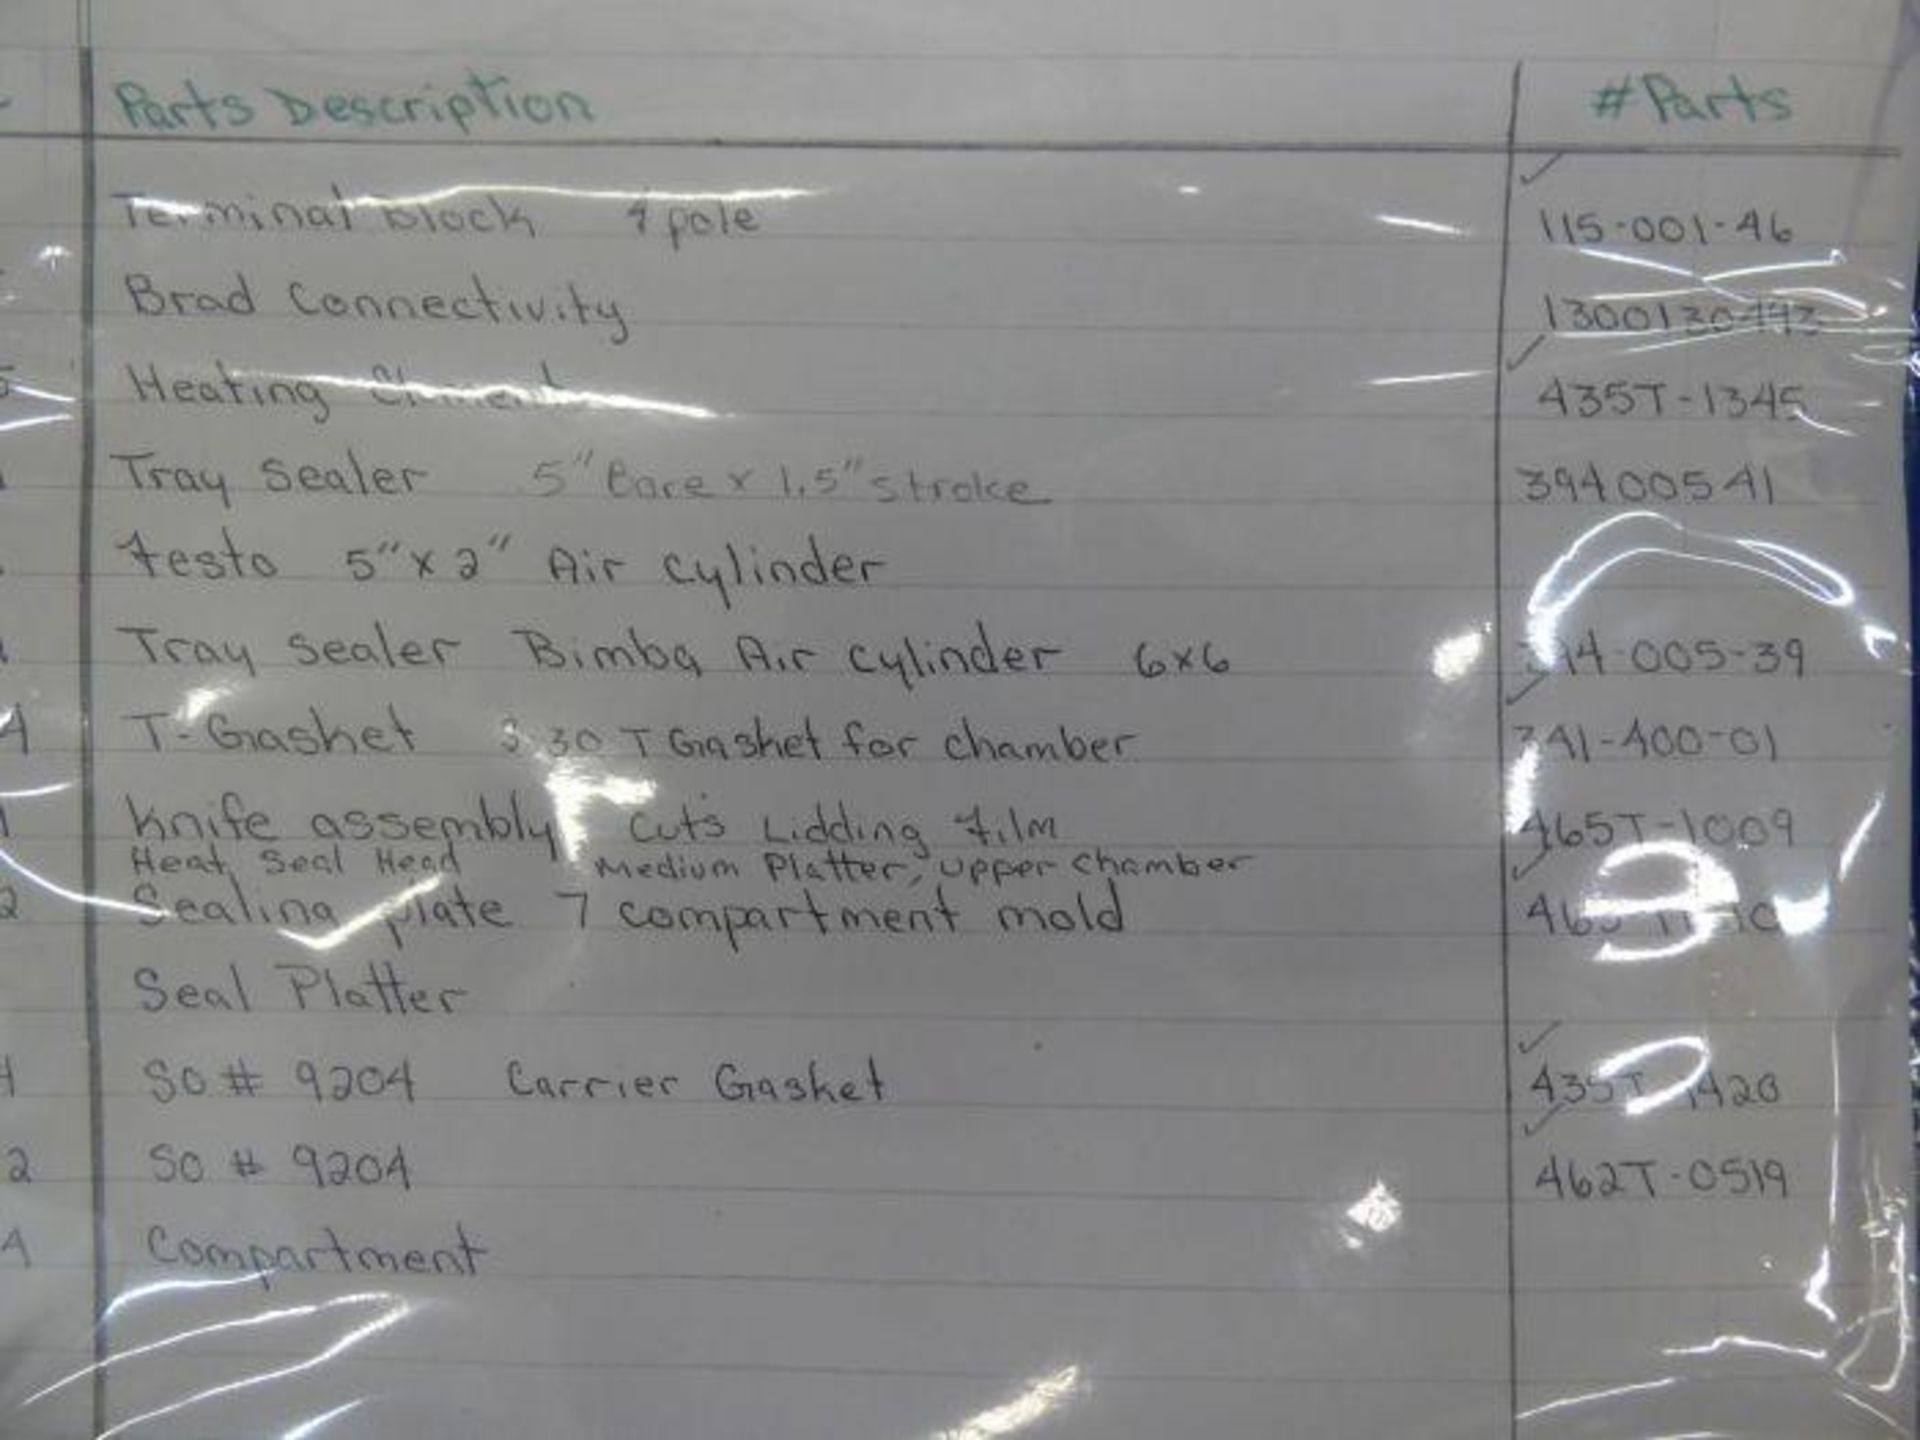 Parts Description #Parts
Terminal Block 4 pole 115-001-46
Brad Connectivity
Heating 435T-1345
Tray Sealer 5" Bore x 1.5" stroke 39400541
festo 5" x 2" Air cylinder
Tray Sealer Bimba Air cylinder 6x6 394-005-39
4 T-Gasket 30 T Gasket for chamber 341-400-01
1 Knife assembly cuts Lidding film 465T-1009
Heat Seal Head Medium Platter, upper chamber
2 Sealing plate 7 compartment mold
Seal Platter
4 SO # 9204 Carrier Gasket
2 SO # 9204 462T-0519
4 Compartment